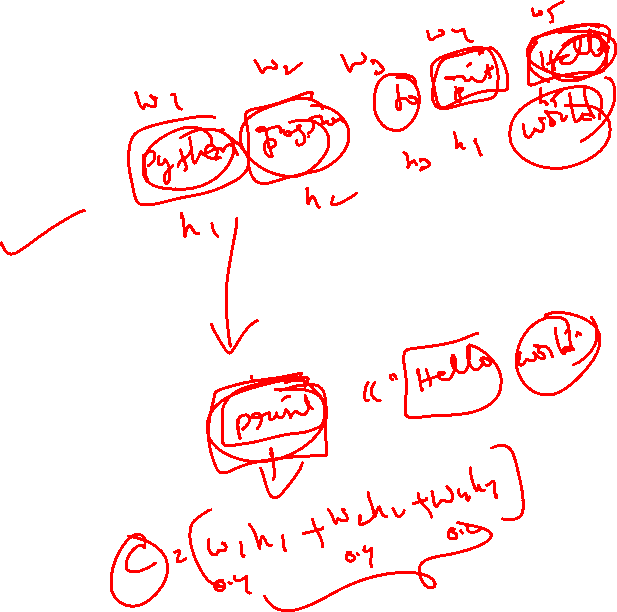 w1 w2 w3 w4 w5
python program to print Hello world
h1 h2 h3 h4 h5
print ("Hello world"
C = [w1h1 + w2h2 + w4h4]
0.4 0.4 0.2